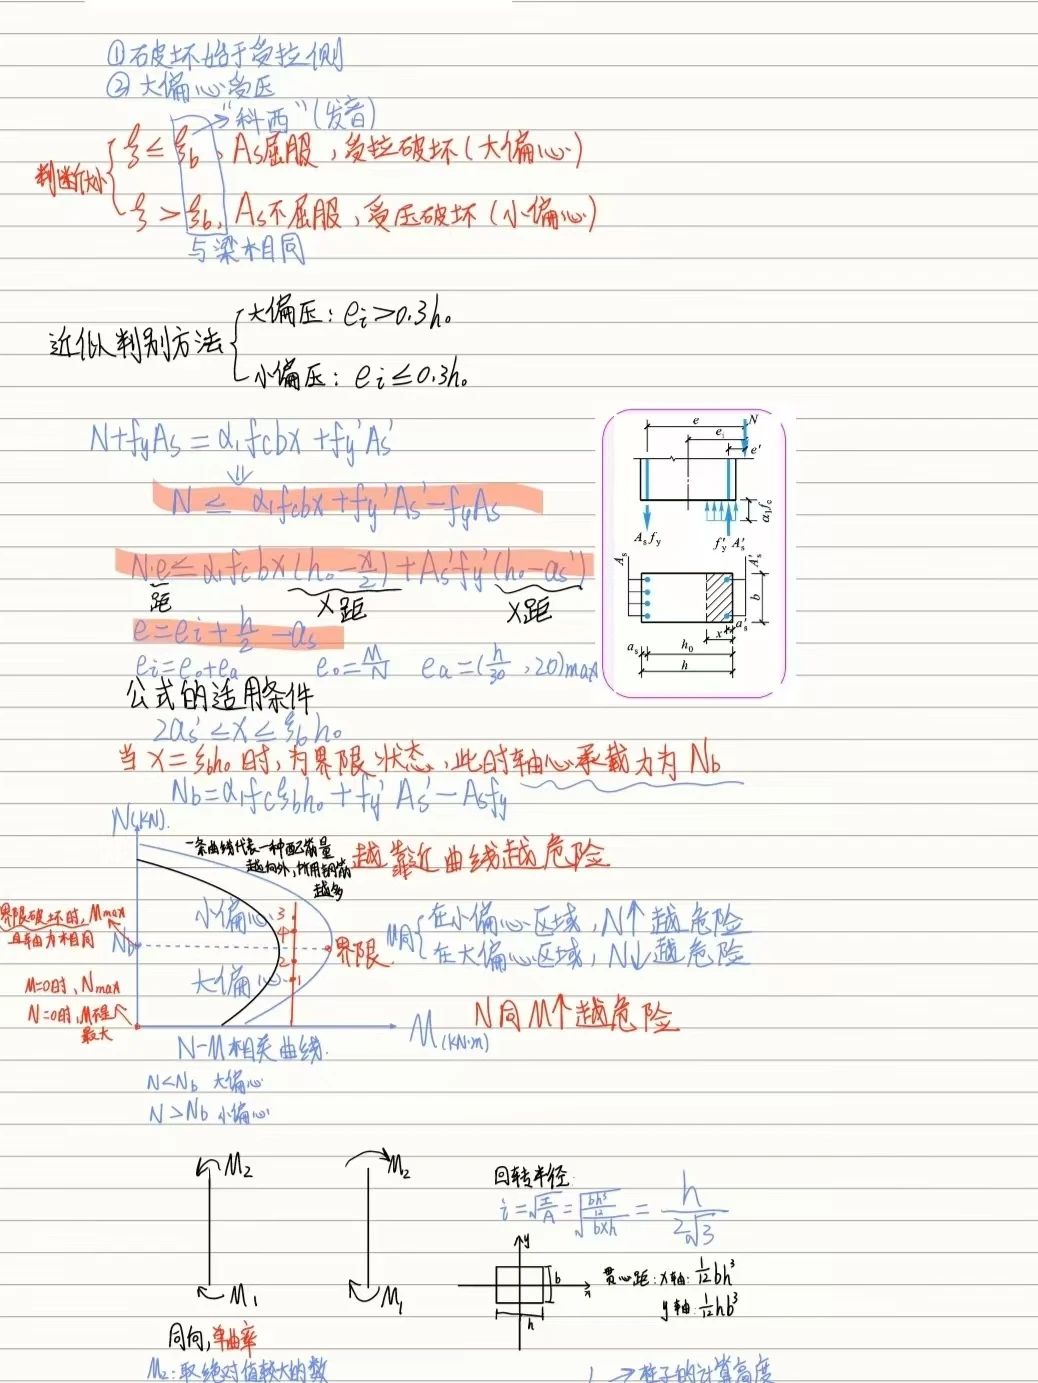 ①破坏始于受拉侧
②大偏心受压
"科西"(发音)
判断大小
ξ≤ξb, As屈服,受拉破坏(大偏心)
ξ>ξb, As不屈服,受压破坏(小偏心)
与梁相同
近似判别方法
大偏压: ei>0.3h₀
小偏压: ei≤0.3h₀
N+fyAs=α₁fcbx+fy'As'
⇓
N ≤ α₁fcbx+fy'As'-fyAs
N·e≤α₁fcbx(h₀-x/2)+As'fy'(h₀-as')
距 X距 X距
e=ei+h/2-as
ei=e₀+ea e₀=M/N ea=(h/30,20)max
e N
ei
e'
α₁fc
As fy f'y A's
As A's
b
x a's
as h₀
h
公式的适用条件
2as'≤x≤ξbh₀
当x=ξbh₀时,为界限状态,此时轴心承载力为Nb
Nb=α₁fcξbh₀+fy'As'-Asfy
N(KN).
一条曲线代表一种配筋量
越向外,所用钢筋
越多
越靠近曲线越危险
小偏心
3
4
界限破坏时,Mmax
Nb
界限
2
大偏心
1
M同
在小偏心区域,N↑越危险
在大偏心区域,N↓越危险
M=0时,Nmax
N=0时,M不是
最大
M(KN·m)
N同M↑越危险
N-M相关曲线.
N<Nb 大偏心
N>Nb 小偏心
M₂ M₂
M₁ M₁
同向,单曲率
M₂:取绝对值较大的数
回转半径
i=√(I/A)=√((bh³/12)/(b×h))=h/(2√3)
y
b
x
h
贯心距:x轴:1/12bh³
y轴:1/12hb³
→柱子的计算高度